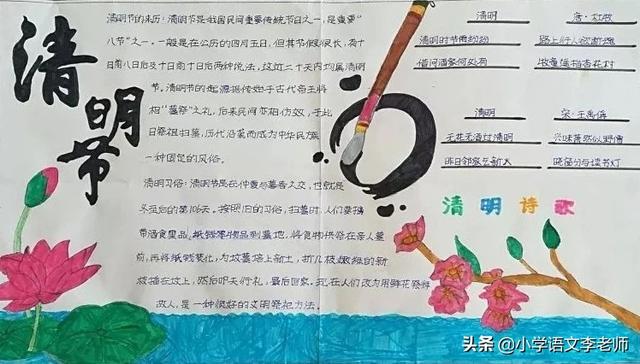 清明节
清明节的来历：清明节是我国民间重要传统节日之一，是重要"
八节"之一。一般是在公历的四月五日，但其节假很长，有十
日前八日后及十日前十日后两种说法，这近二十天内均属清明
节。清明节的起源据传始于古代帝王将
相"墓祭"之礼，后来民间亦相仿效，于此
日祭祖扫墓，历代沿袭而成为中华民族
一种固定的风俗。
清明习俗：清明节是在仲春与暮春之交，也就是
冬至后的第106天。按照旧的习俗，扫墓时，人们要携
带酒食果品、纸钱等物品到墓地，将食物供祭在亲人墓
前，再将纸钱焚化，为坟墓培上新土，折几枝嫩绿的新
枝插在坟上，然后叩头行礼，最后回家。现在人们改为用鲜花祭拜
故人，是一种很好的文明祭祀方法。
清明 唐·杜牧
清明时节雨纷纷 路上行人欲断魂
借问酒家何处有 牧童遥指杏花村
清明 宋·王禹偁
无花无酒过清明 兴味萧然似野僧
昨日邻家乞新火 晓窗分与读书灯
清明诗歌
头条 @小学语文李老师